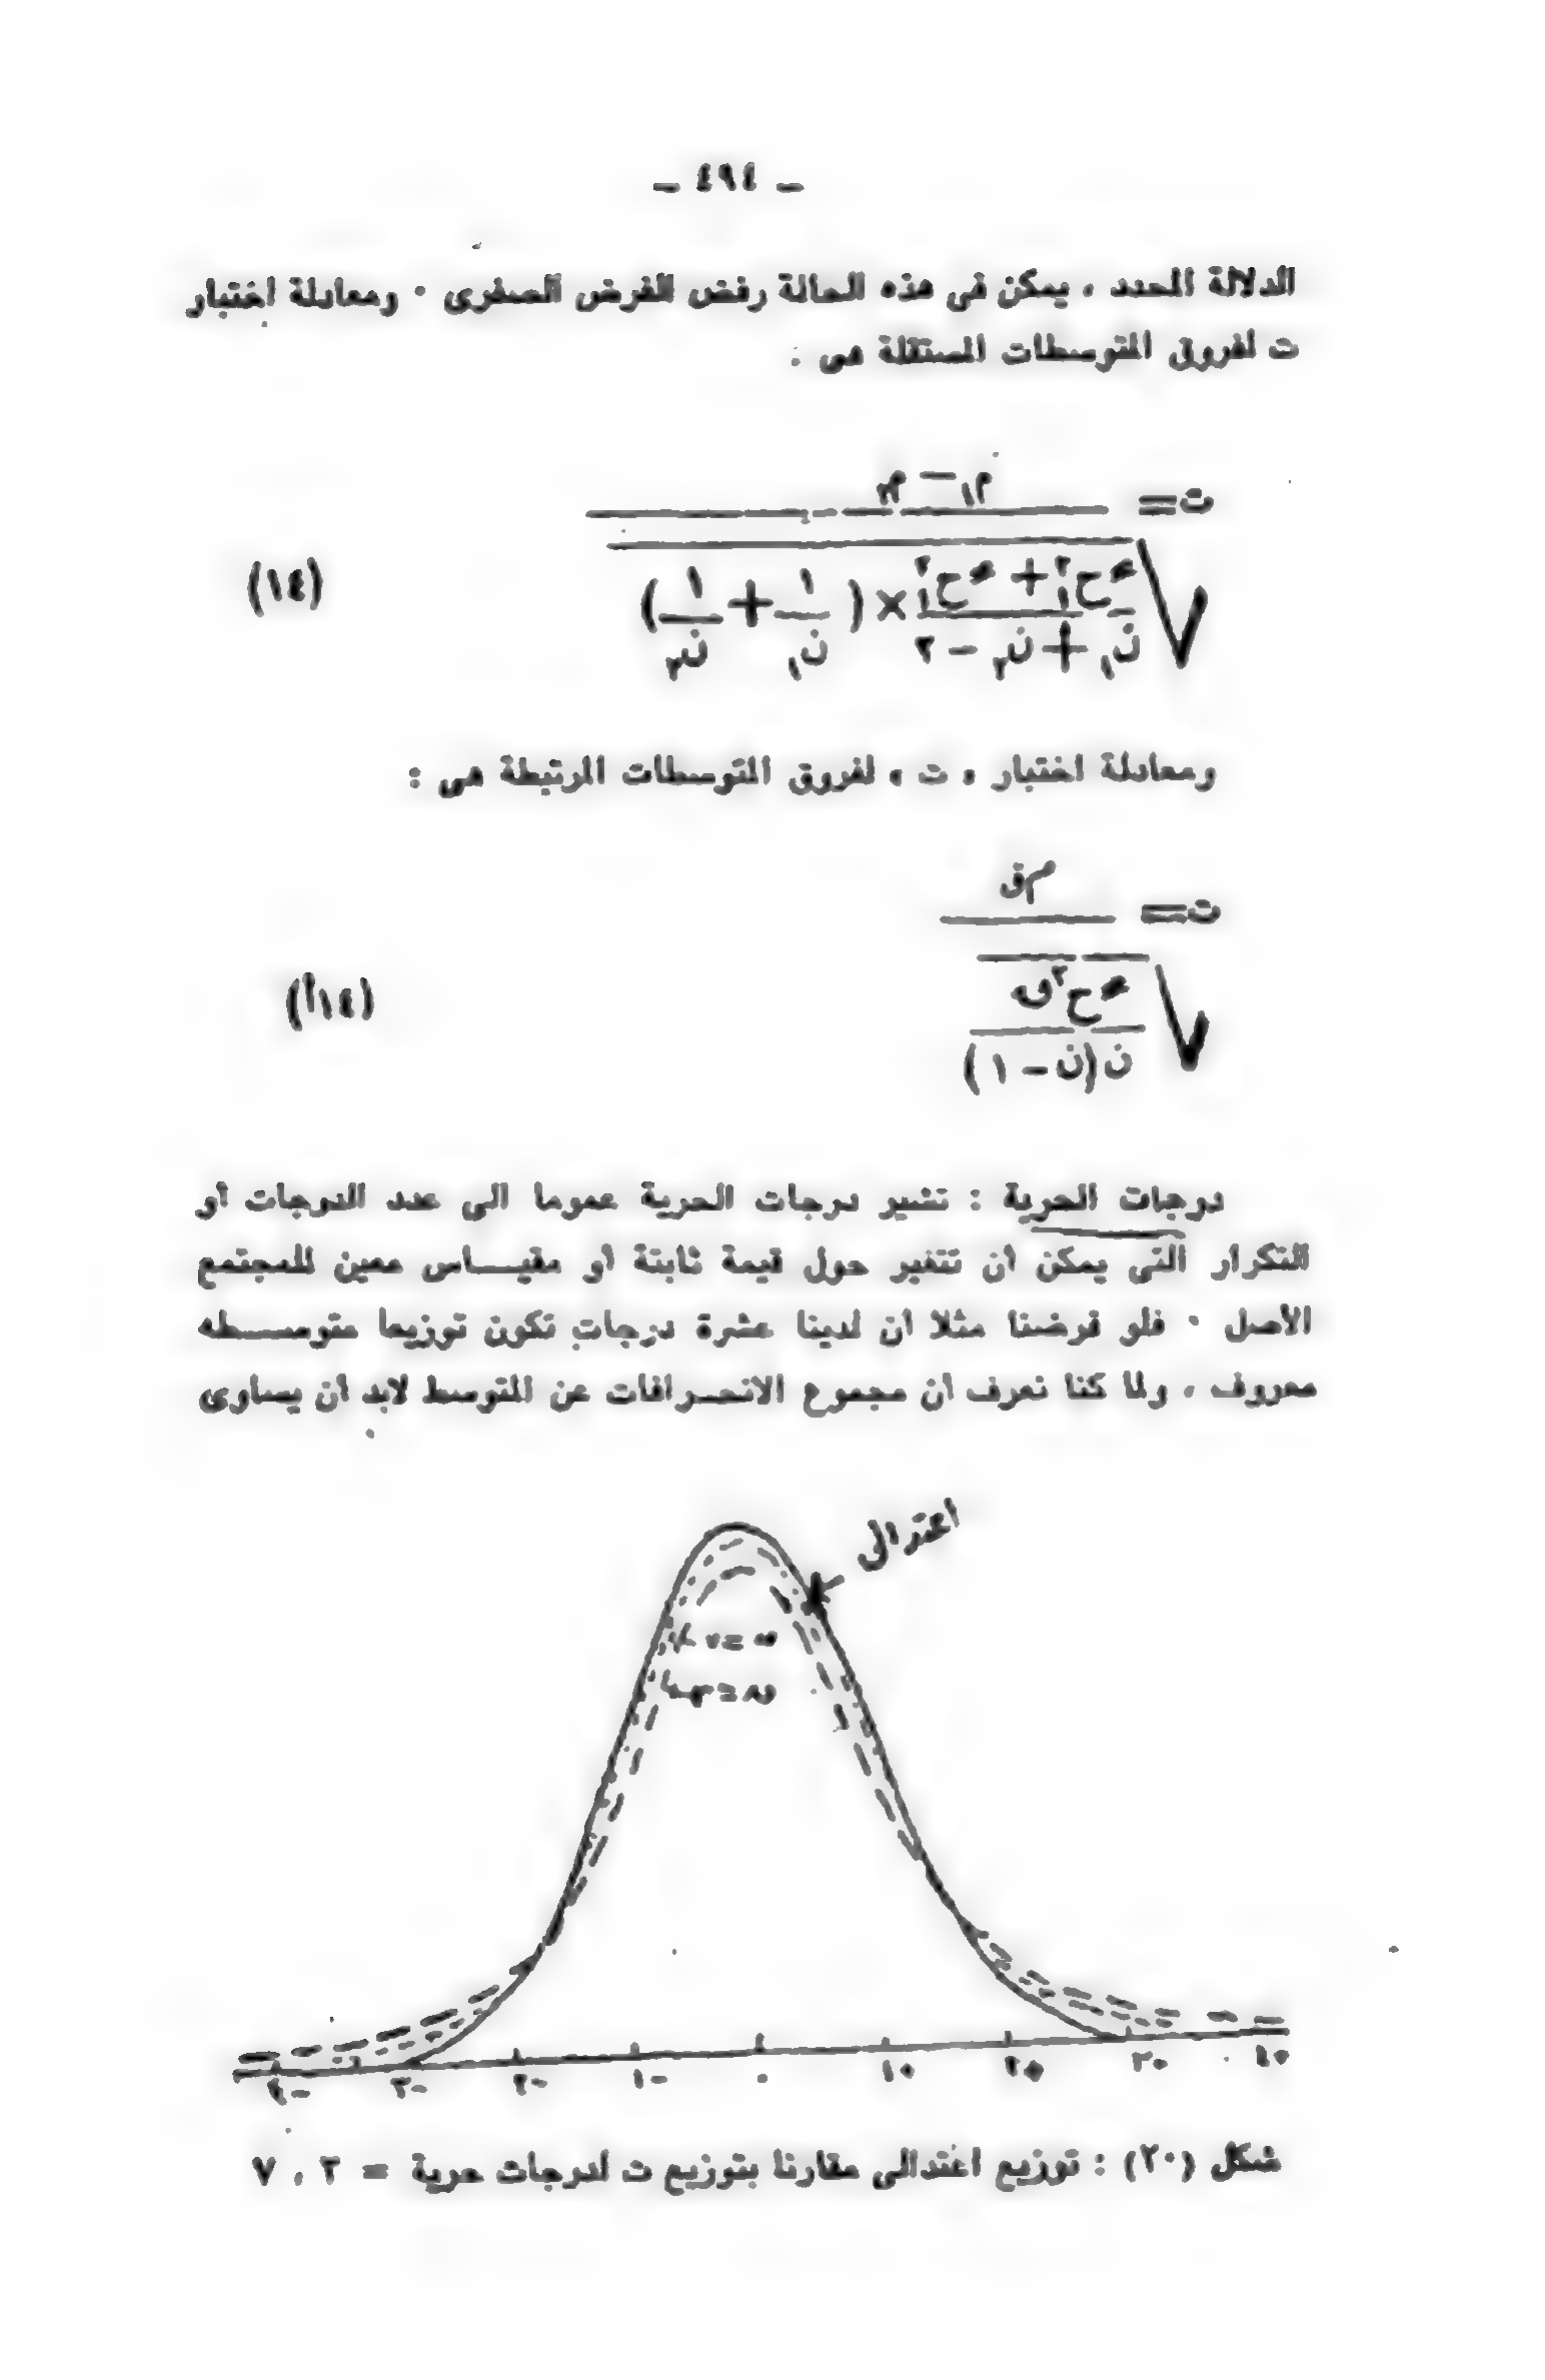 ــ ٤٩٤ ــ
الدلالة المحدد ، يمكن فى هذه الحالة رفض الفرض الصفرى ٠ ومعادلة اختبار
ت لفروق المتوسطات المستقلة هى :
ت = م١ − م٢
مج ح٢١ + مج ح٢٢ × ( ١ + ١ ) (١٤)
ن١ + ن٢ − ٢ ن١ ن٢
ومعادلة اختبار « ت » لفروق المتوسطات المرتبطة هى :
ت = م ق
مج ح٢ ق (١٤أ)
ن(ن − ١)
درجات الحرية : تشير درجات الحرية عموما الى عدد الدرجات أو
التكرار التى يمكن أن تتغير حول قيمة ثابتة أو مقيـــاس معين للمجتمع
الأصل ٠ فلو فرضنا مثلا أن لدينا عشرة درجات تكون توزيعا متوســطه
معروف ، ولما كنا نعرف أن مجموع الانحـرافات عن المتوسط لابد أن يساوى
اعتدالى
٤− ٣− ٢− ١− ٠ ١+ ٢+ ٣+ ٤+
شكل (٢٠) : توزيع اعتدالى مقارنا بتوزيع ت لدرجات حرية = ٣ ، ٧